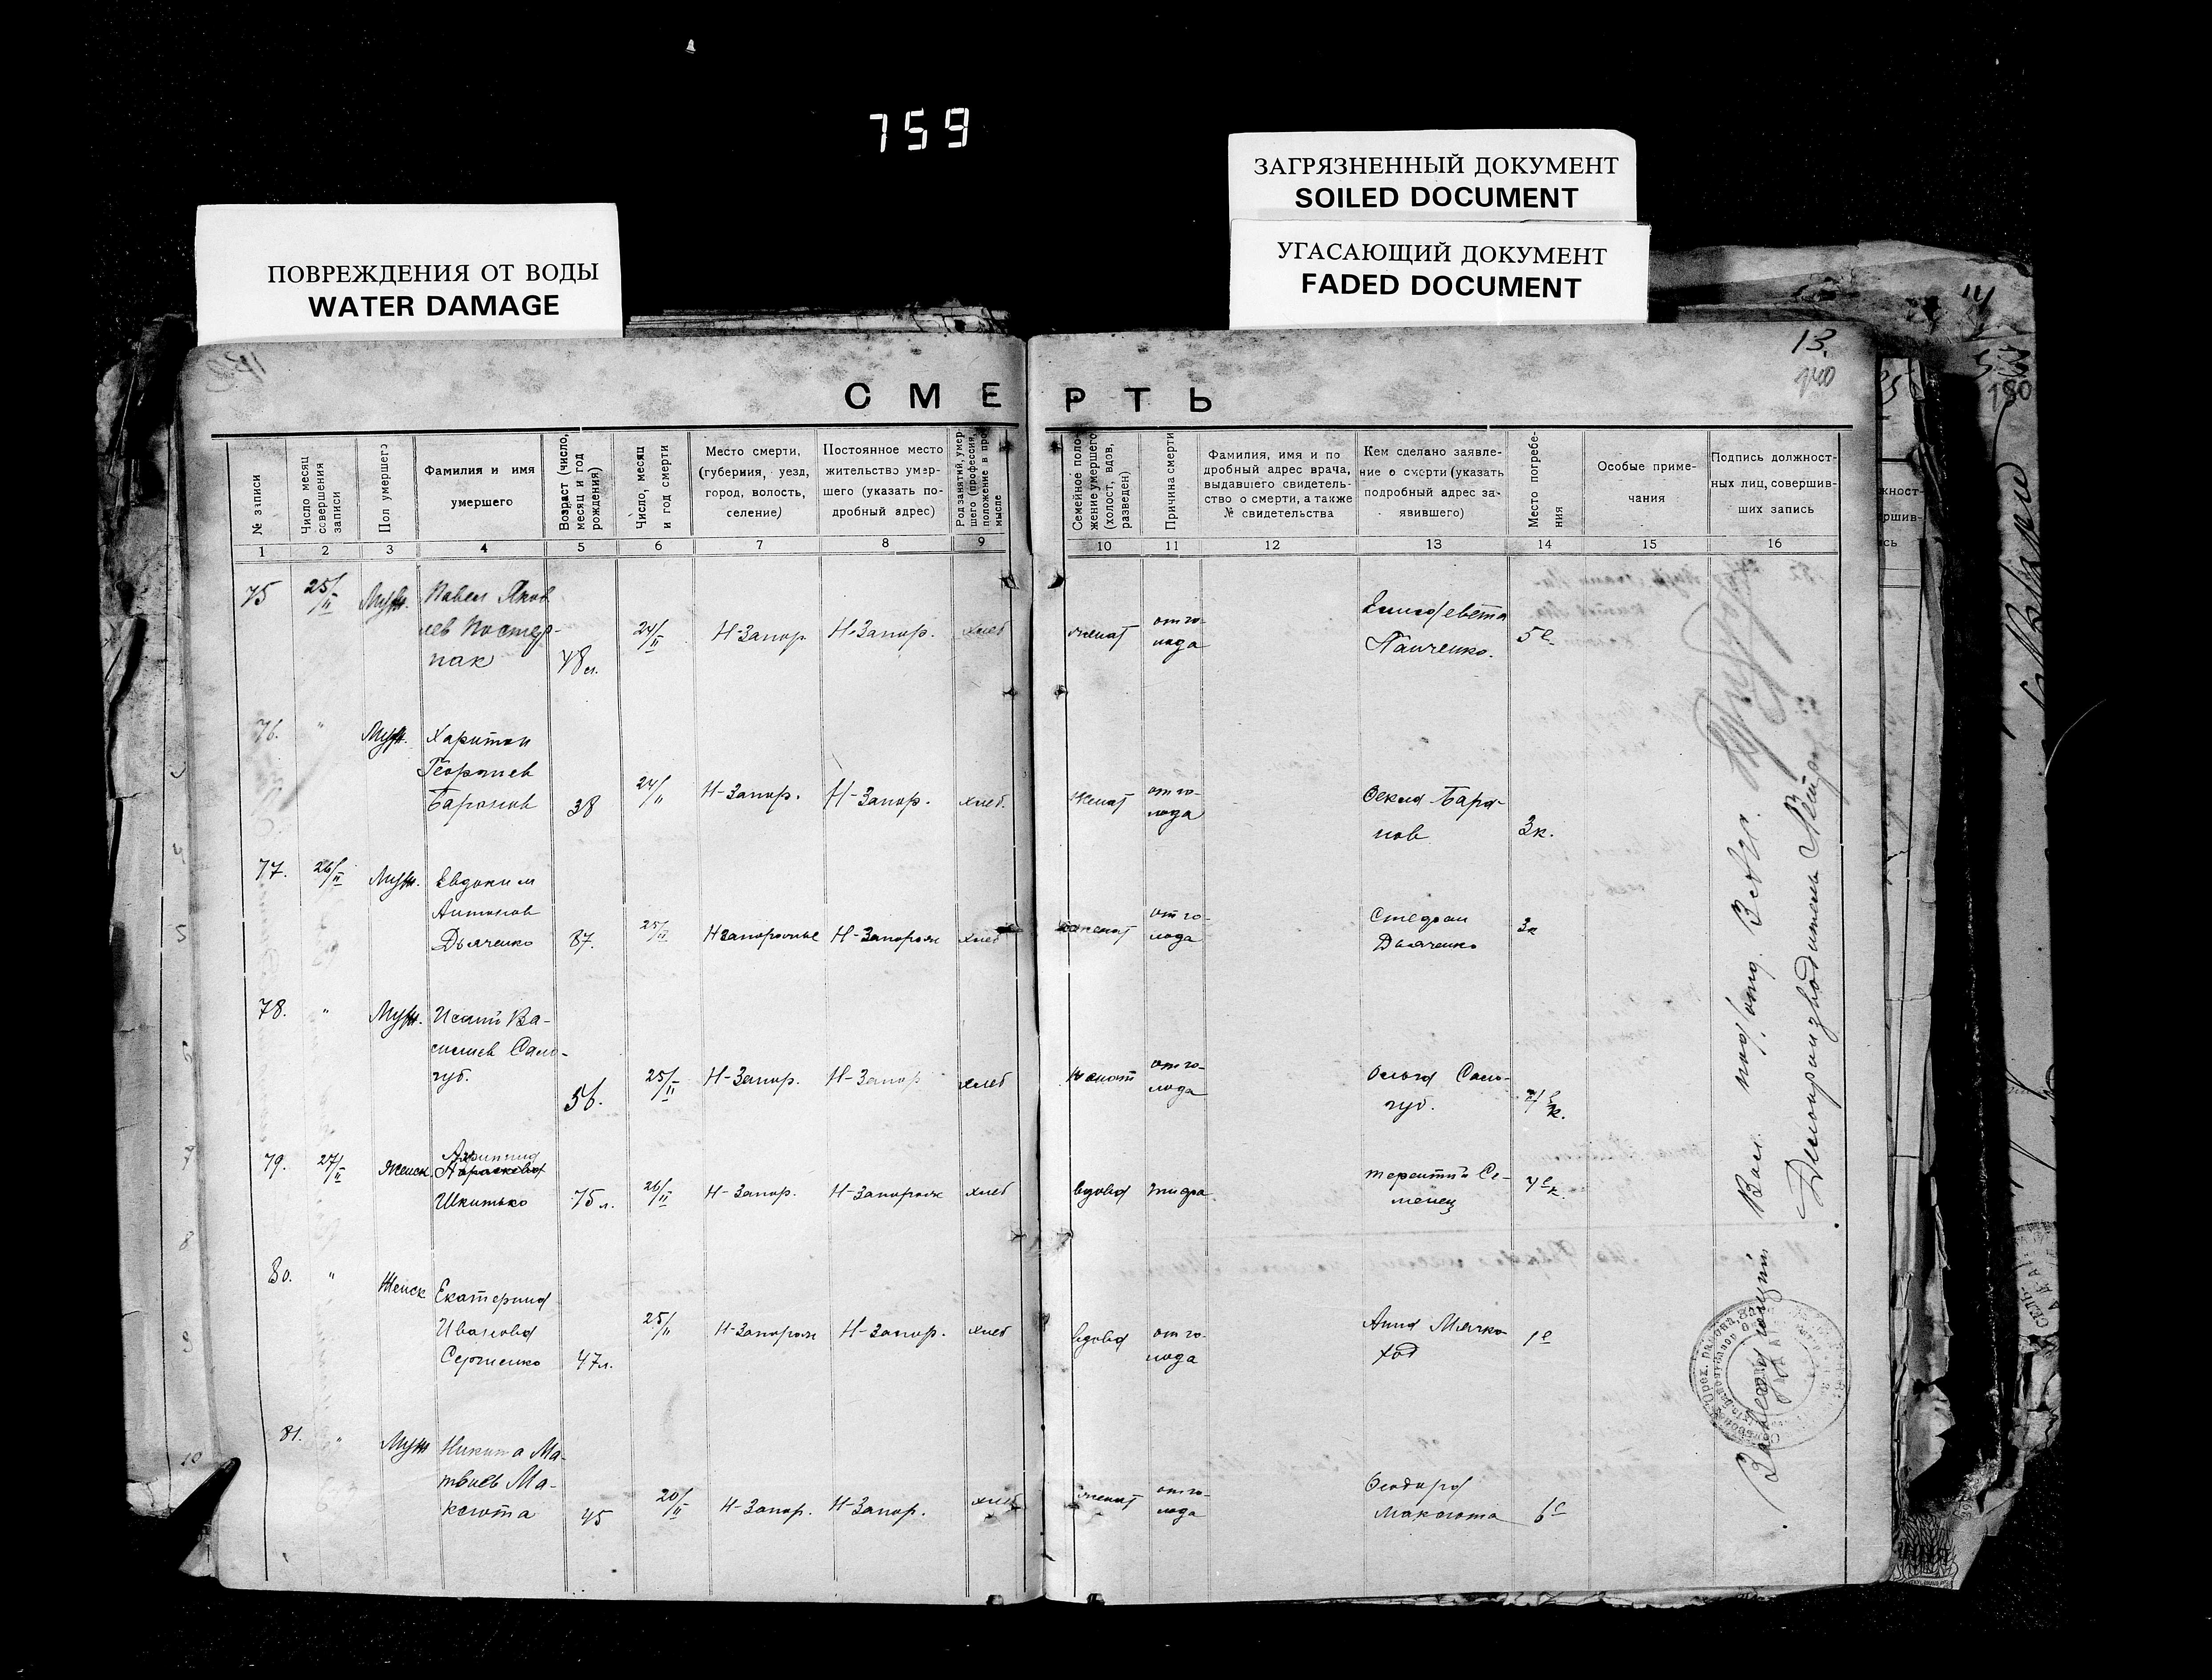 759
ПОВРЕЖДЕНИЯ ОТ ВОДЫ
WATER DAMAGE
ЗАГРЯЗНЕННЫЙ ДОКУМЕНТ
SOILED DOCUMENT
УГАСАЮЩИЙ ДОКУМЕНТ
FADED DOCUMENT
13.
140
190
СМЕРТЬ
№ записи
Число месяц
совершения
записи
Пол умершего
Фамилия и имя
умершего
Возраст (число,
месяц и год
рождения)
Число, месяц
и год смерти
Место смерти,
(губерния, уезд,
город, волость,
селение)
Постоянное место
жительство умер-
шего (указать по-
дробный адрес)
Род занятий, умер-
шего (профессия,
положение в про-
мысле
Семейное поло-
жение умершего
(холост, вдов,
разведен)
Причина смерти
Фамилия, имя и по
дробный адрес врача,
выдавшего свидетель-
ство о смерти, а также
№ свидетельства
Кем сделано заявле-
ние о смерти (указать
подробный адрес за-
явившего)
Место погребе-
ния
Особые приме-
чания
Подпись должност-
ных лиц, совершив-
ших запись
1 2 3 4 5 6 7 8 9 10 11 12 13 14 15 16
75 25/II Муж. Павел Яков
лев Постер-
нак 48 л. 24/II Н-Запор. Н-Запор. хлеб женат от го-
лода Елизовета
Панченко. 5е
76. " Муж. Харитон
Георгиев
Баранов 38 24/II Н-Запор. Н-Запор. хлеб. женат от го-
лода Баран-
нов 3к.
77. 26/II Муж. Евдоким
Антонов
Дьяченко 87. 25/II Н Запорожье Н-Запорож хлеб женат от го-
лода Стефан
Дьяченко 3к
78. " Муж. Исай Ва-
силиев Сало-
губ. 56. 25/II Н-Запор. Н-Запор хлеб женат от го-
лода Ольга Сало-
губ.
79. 27/II Женск.
Шкитько 75 л. 26/II Н-Запор. Н-Запорож хлеб вдова тифа. Терентий Се-
менец
80. " Женск Екатерина
Иванова
Сергиенко 47 л. 25/II Н-Запорож Н-Запор. хлеб вдова от го-
лода Анна Мягко
ход 1е
81. " Муж Никита Ма-
твиев Ма-
ксюта 45 20/II Н-Запор. Н-Запор. хлеб женат от го-
лода Феодора
Максюта 6е
Делопроизводитель